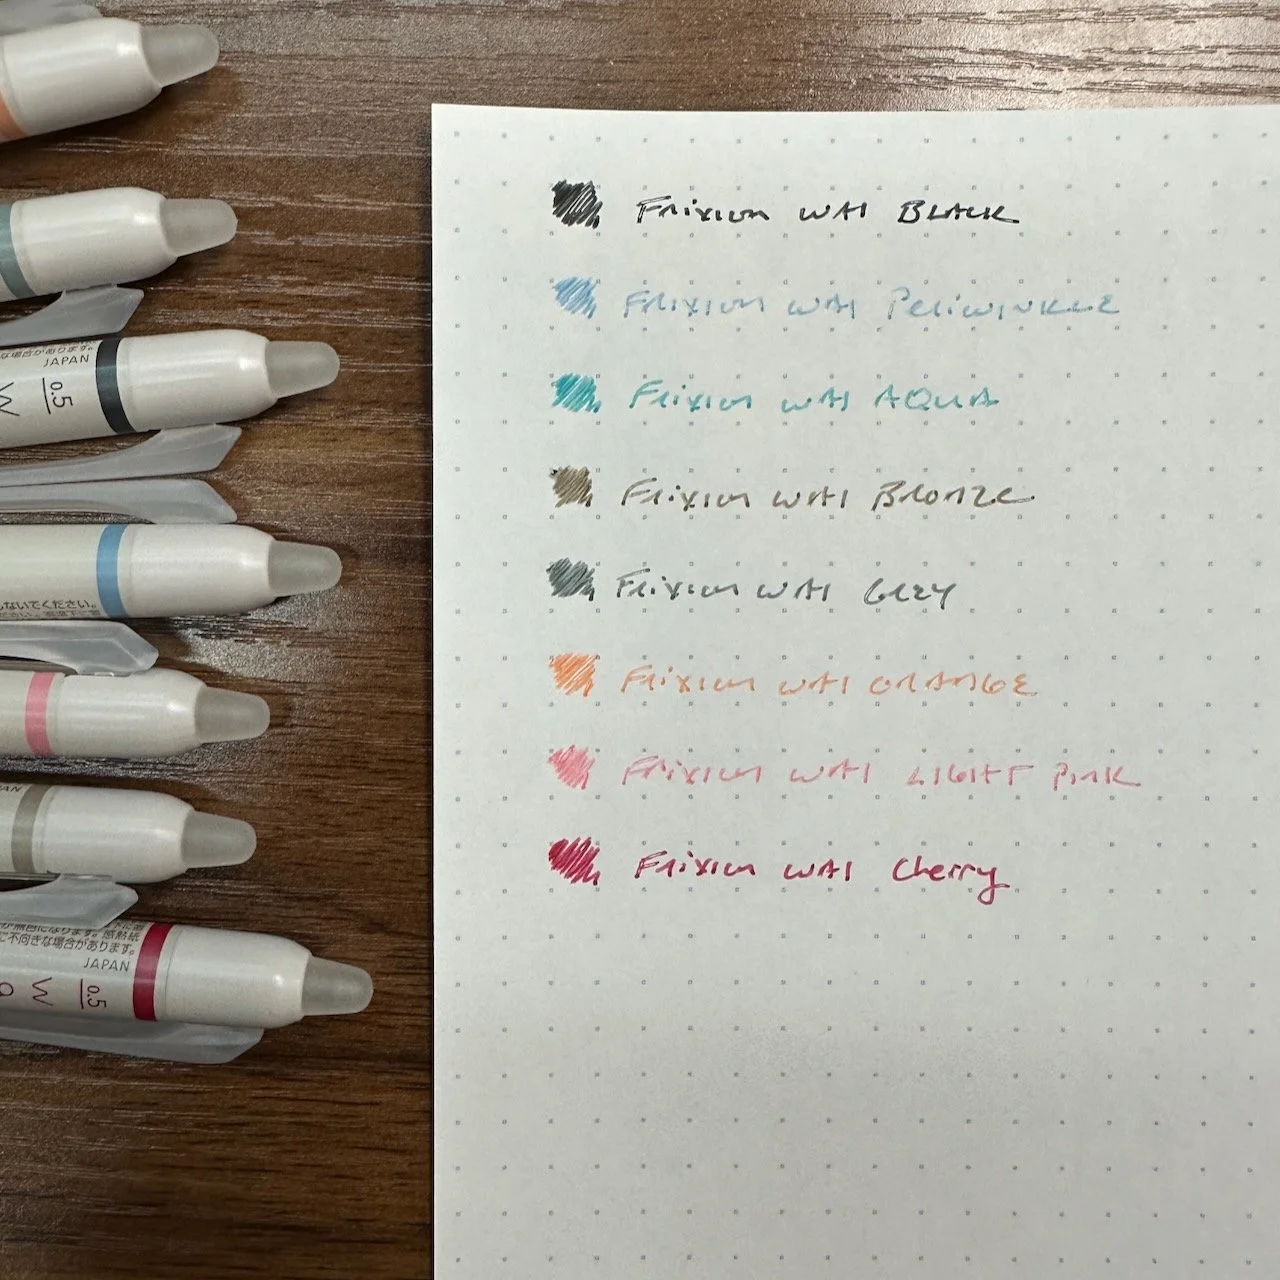 な場合があります。
JAPAN
0.5
W
しないでください。
AN
不向きな場合があります。
JAPAN
0.5
W
a
Frixion WAI BLACK
Frixion WAI Periwinkle
Frixion WAI AQUA
Frixion WAI Bronze
Frixion WAI Grey
Frixion WAI ORANGE
Frixion WAI LIGHT Pink
Frixion WAI Cherry